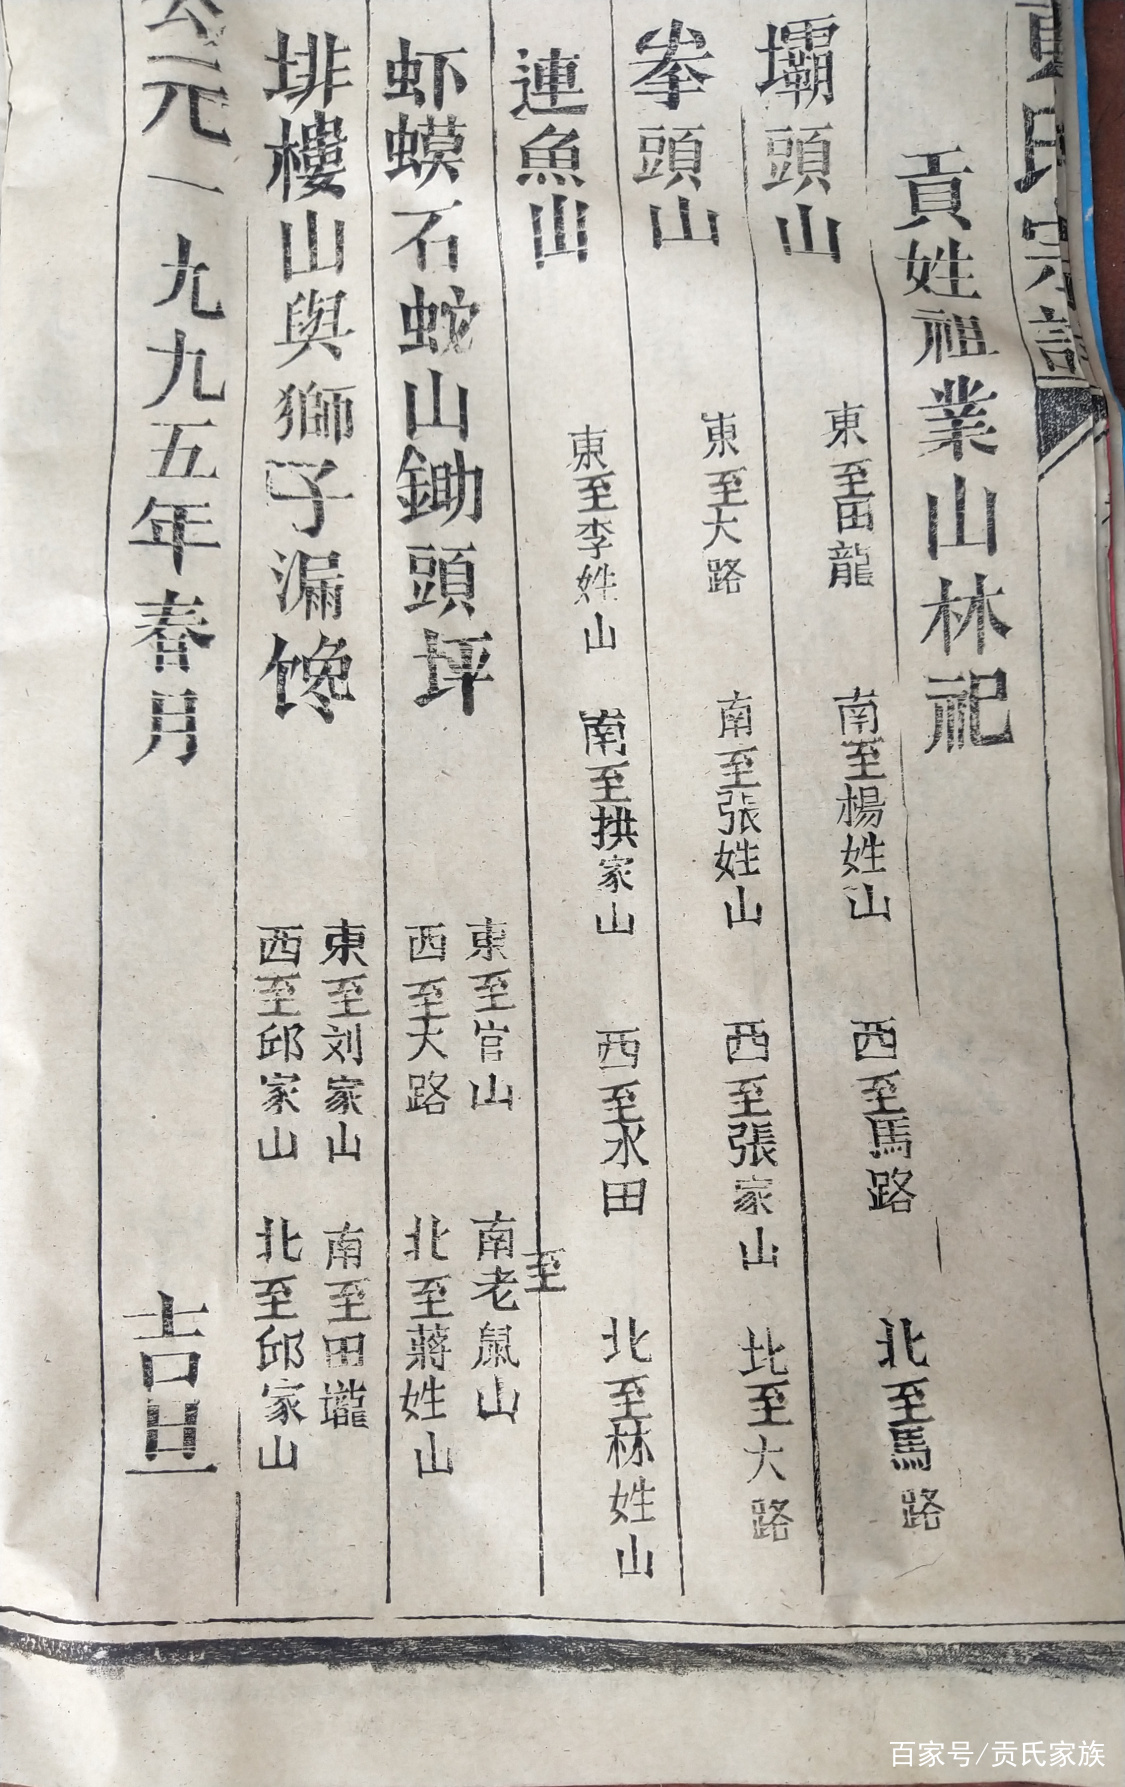 貢氏宗譜
貢姓祖業山林祀
壩頭山 東至田龍 南至楊姓山 西至馬路 北至馬路
拳頭山 東至大路 南至張姓山 西至張家山 北至大路
連魚山 東至李姓山 南至拱家山 西至水田 北至林姓山
虾蟆石蛇山鋤頭坪 東至官山 南至老鼠山
西至大路 北至蔣姓山
排樓山與獅子漏馋 東至刘家山 南至田壠
西至邱家山 北至邱家山
公元一九九五年春月 吉旦
百家号/贡氏家族